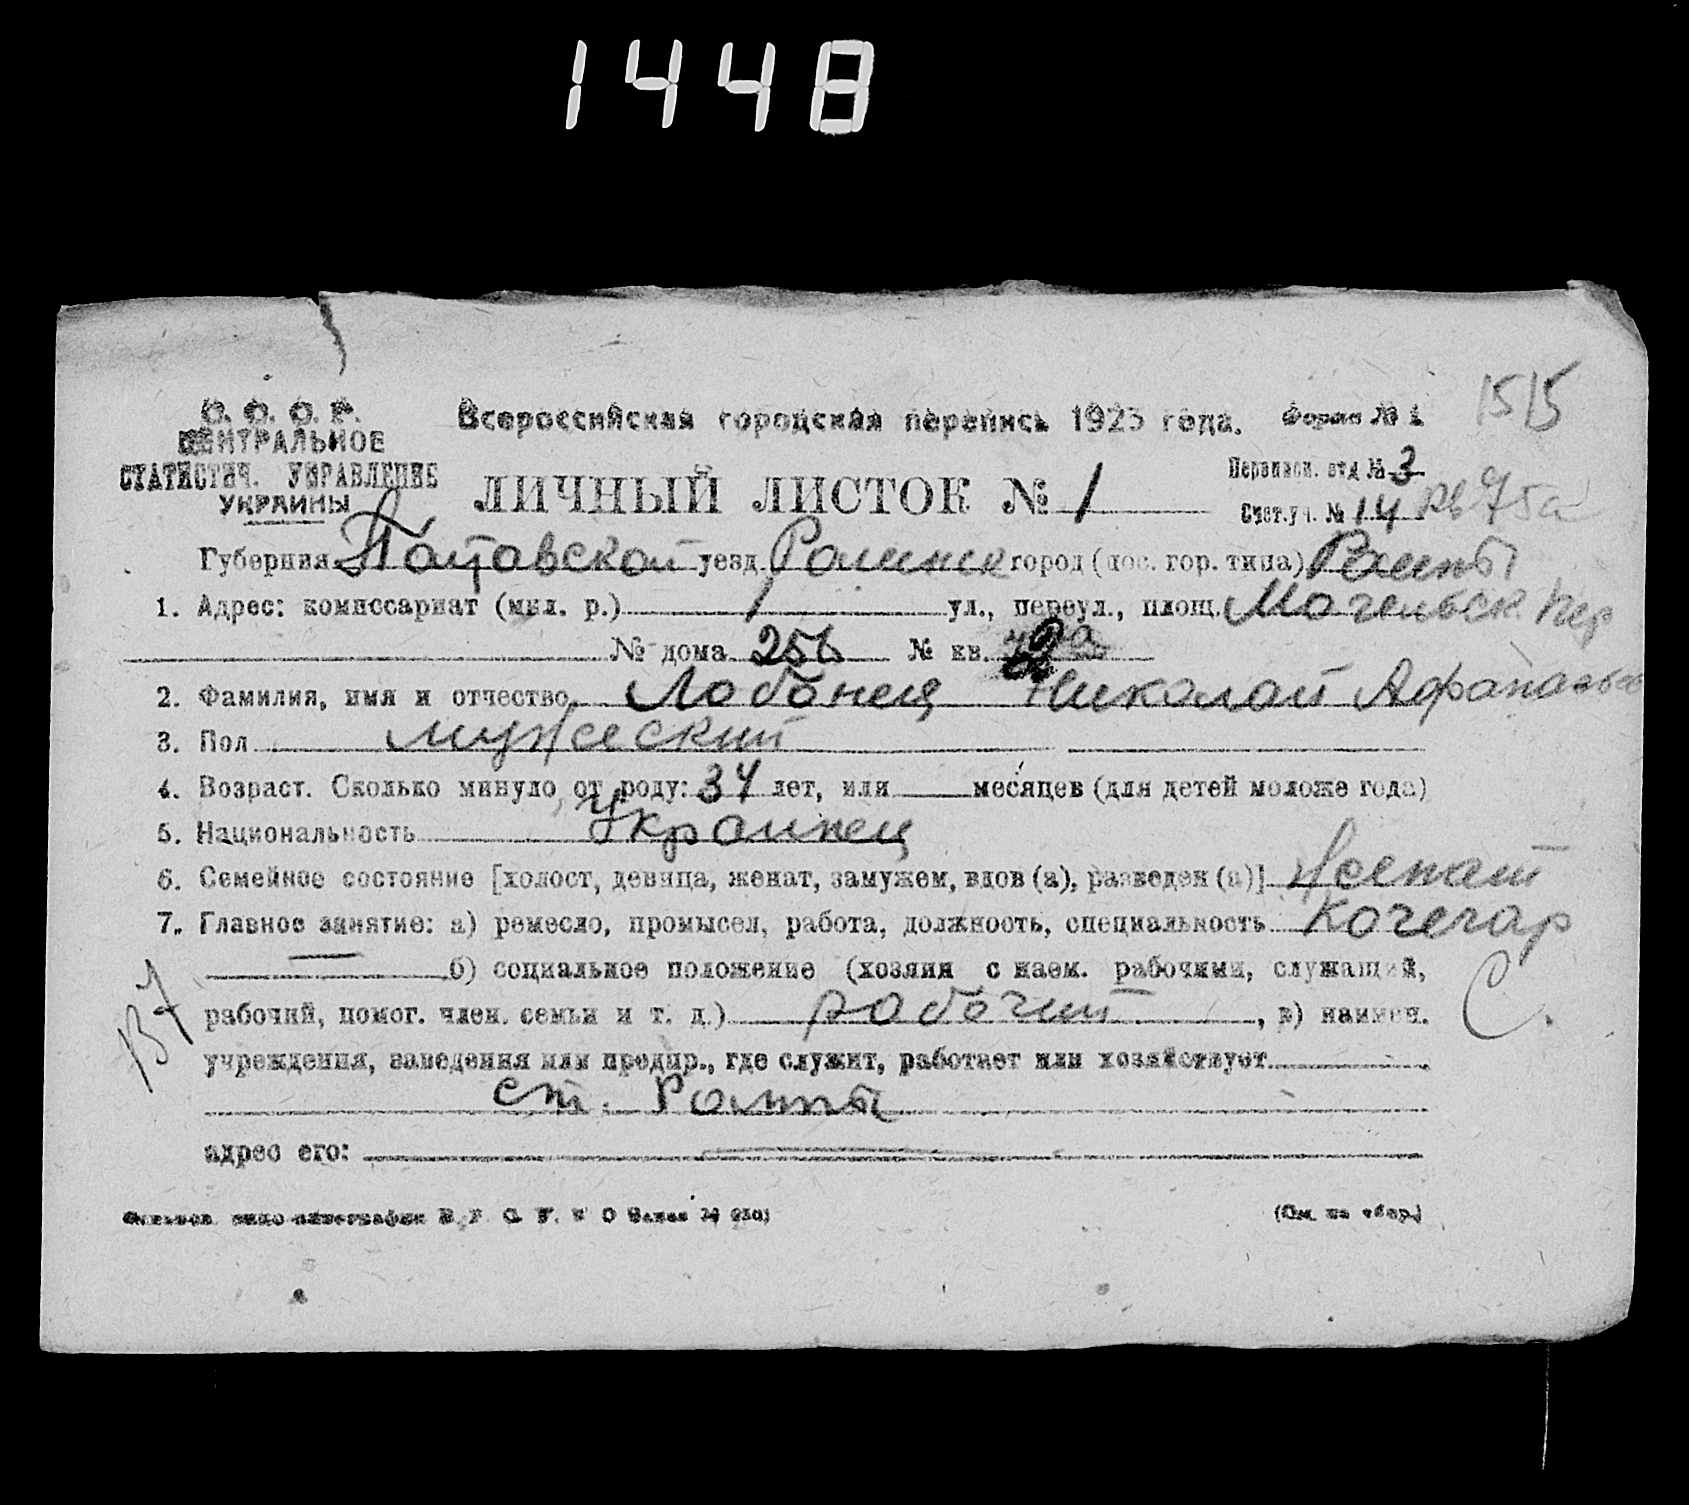 1448
1515
С. С. С. Р. Всероссийская городская перепись 1923 года. Форма № 1
ЦЕНТРАЛЬНОЕ
СТАТИСТИЧ. УПРАВЛЕНИЕ
УКРАИНЫ
ЛИЧНЫЙ ЛИСТОК № 1
Переписн. отд № 3
Счет. уч. № 14 кв 75а
Губерния Полтавской уезд Роменск город (пос. гор. типа) Ромны
1. Адрес: комиссариат (мил. р.) 1 ул., переул., площ. Могильск. пер
№ дома 25б № кв. 2
2. Фамилия, имя и отчество Лобанец Николай Афанасьев
3. Пол мужеский
4. Возраст. Сколько минуло от роду: 34 лет, или месяцев (для детей моложе года)
5. Национальность Украинец
6. Семейное состояние [холост, девица, женат, замужем, вдов (а), разведен (а)] Женат
7. Главное занятие: а) ремесло, промысел, работа, должность, специальность Кочегар
— б) социальное положение (хозяин с наем. рабочими, служащий,
рабочий, помог. член. семьи и т. д.) рабочий, в) наимен. С.
137
учреждения, заведения или предпр., где служит, работает или хозяйствует
ст. Ромны
адрес его:
(См. на обор.)